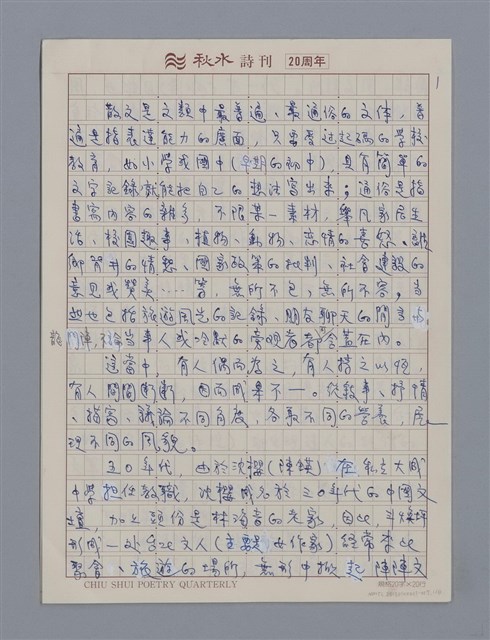 秋水詩刊 20周年
1
散文是文類中最普遍、最通俗的文体，普
遍是指表達能力的廣面，只需受过起碼的學校
教育，如小學或國中(早期的初中)，具有簡單的
文字記錄就能把自己的想法寫出來；通俗是指
書寫內容的雜多，不限某一素材，舉凡家居生
活、校園趣事、植物、動物、戀情的喜怒、離
鄉背井的情愁、國家政策的批判、社會建設的
意見或贊美……等，無所不包，無所不容，当
然也包括旅遊風光的記錄、朋友聊天的閒言
當事人或冷默的旁观者都含蓋在內。
這當中，有人偶而為之，有人持之以恆，
有人間間斷斷，因而成果不一。從敘事、抒情
、描寫、議論不同角度，各取不同的營養，展
現不同的風貌。
五0年代，由於沈櫻(陳鍈)在私立大成
中學担任教職，沈櫻成名於三0年代的中國文
壇，加上頭份是林海音的老家，因此，斗煥坪
形成一处台北文人(主要是女作家)經常來此
聚會、旅遊的場所，無形中掀起陣陣文
CHIU SHUI POETRY QUARTERLY